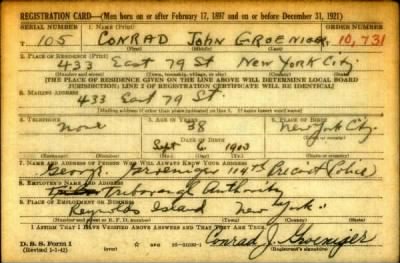 REGISTRATION CARD—(Men born on or after February 17, 1897 and on or before December 31, 1921)
SERIAL NUMBER 1. NAME (Print) ORDER NUMBER
T 105 CONRAD JOHN GROENIGER 10,731
(First) (Middle) (Last)
2. PLACE OF RESIDENCE (Print)
433 East 79 St New York City.
(Number and street) (Town, township, village, or city) (County) (State)
[THE PLACE OF RESIDENCE GIVEN ON THE LINE ABOVE WILL DETERMINE LOCAL BOARD
JURISDICTION; LINE 2 OF REGISTRATION CERTIFICATE WILL BE IDENTICAL]
3. MAILING ADDRESS
433 East 79 St.
[Mailing address if other than place indicated on line 2. If same insert word same]
4. TELEPHONE 5. AGE IN YEARS 6. PLACE OF BIRTH
None 38 New York City.
DATE OF BIRTH
Sept 6 1903
7. NAME AND ADDRESS OF PERSON WHO WILL ALWAYS KNOW YOUR ADDRESS
George Groeniger 114th Precinct Police
8. EMPLOYER'S NAME AND ADDRESS
Triborough Authority
9. PLACE OF EMPLOYMENT OR BUSINESS
Island New York.
(Number and street or R. F. D. number) (Town) (County) (State)
I AFFIRM THAT I HAVE VERIFIED ABOVE ANSWERS AND THAT THEY ARE TRUE.
D. S. S. Form 1
(Revised 1-1-42) (over)
Conrad J. Groeniger
(Registrant's signature)